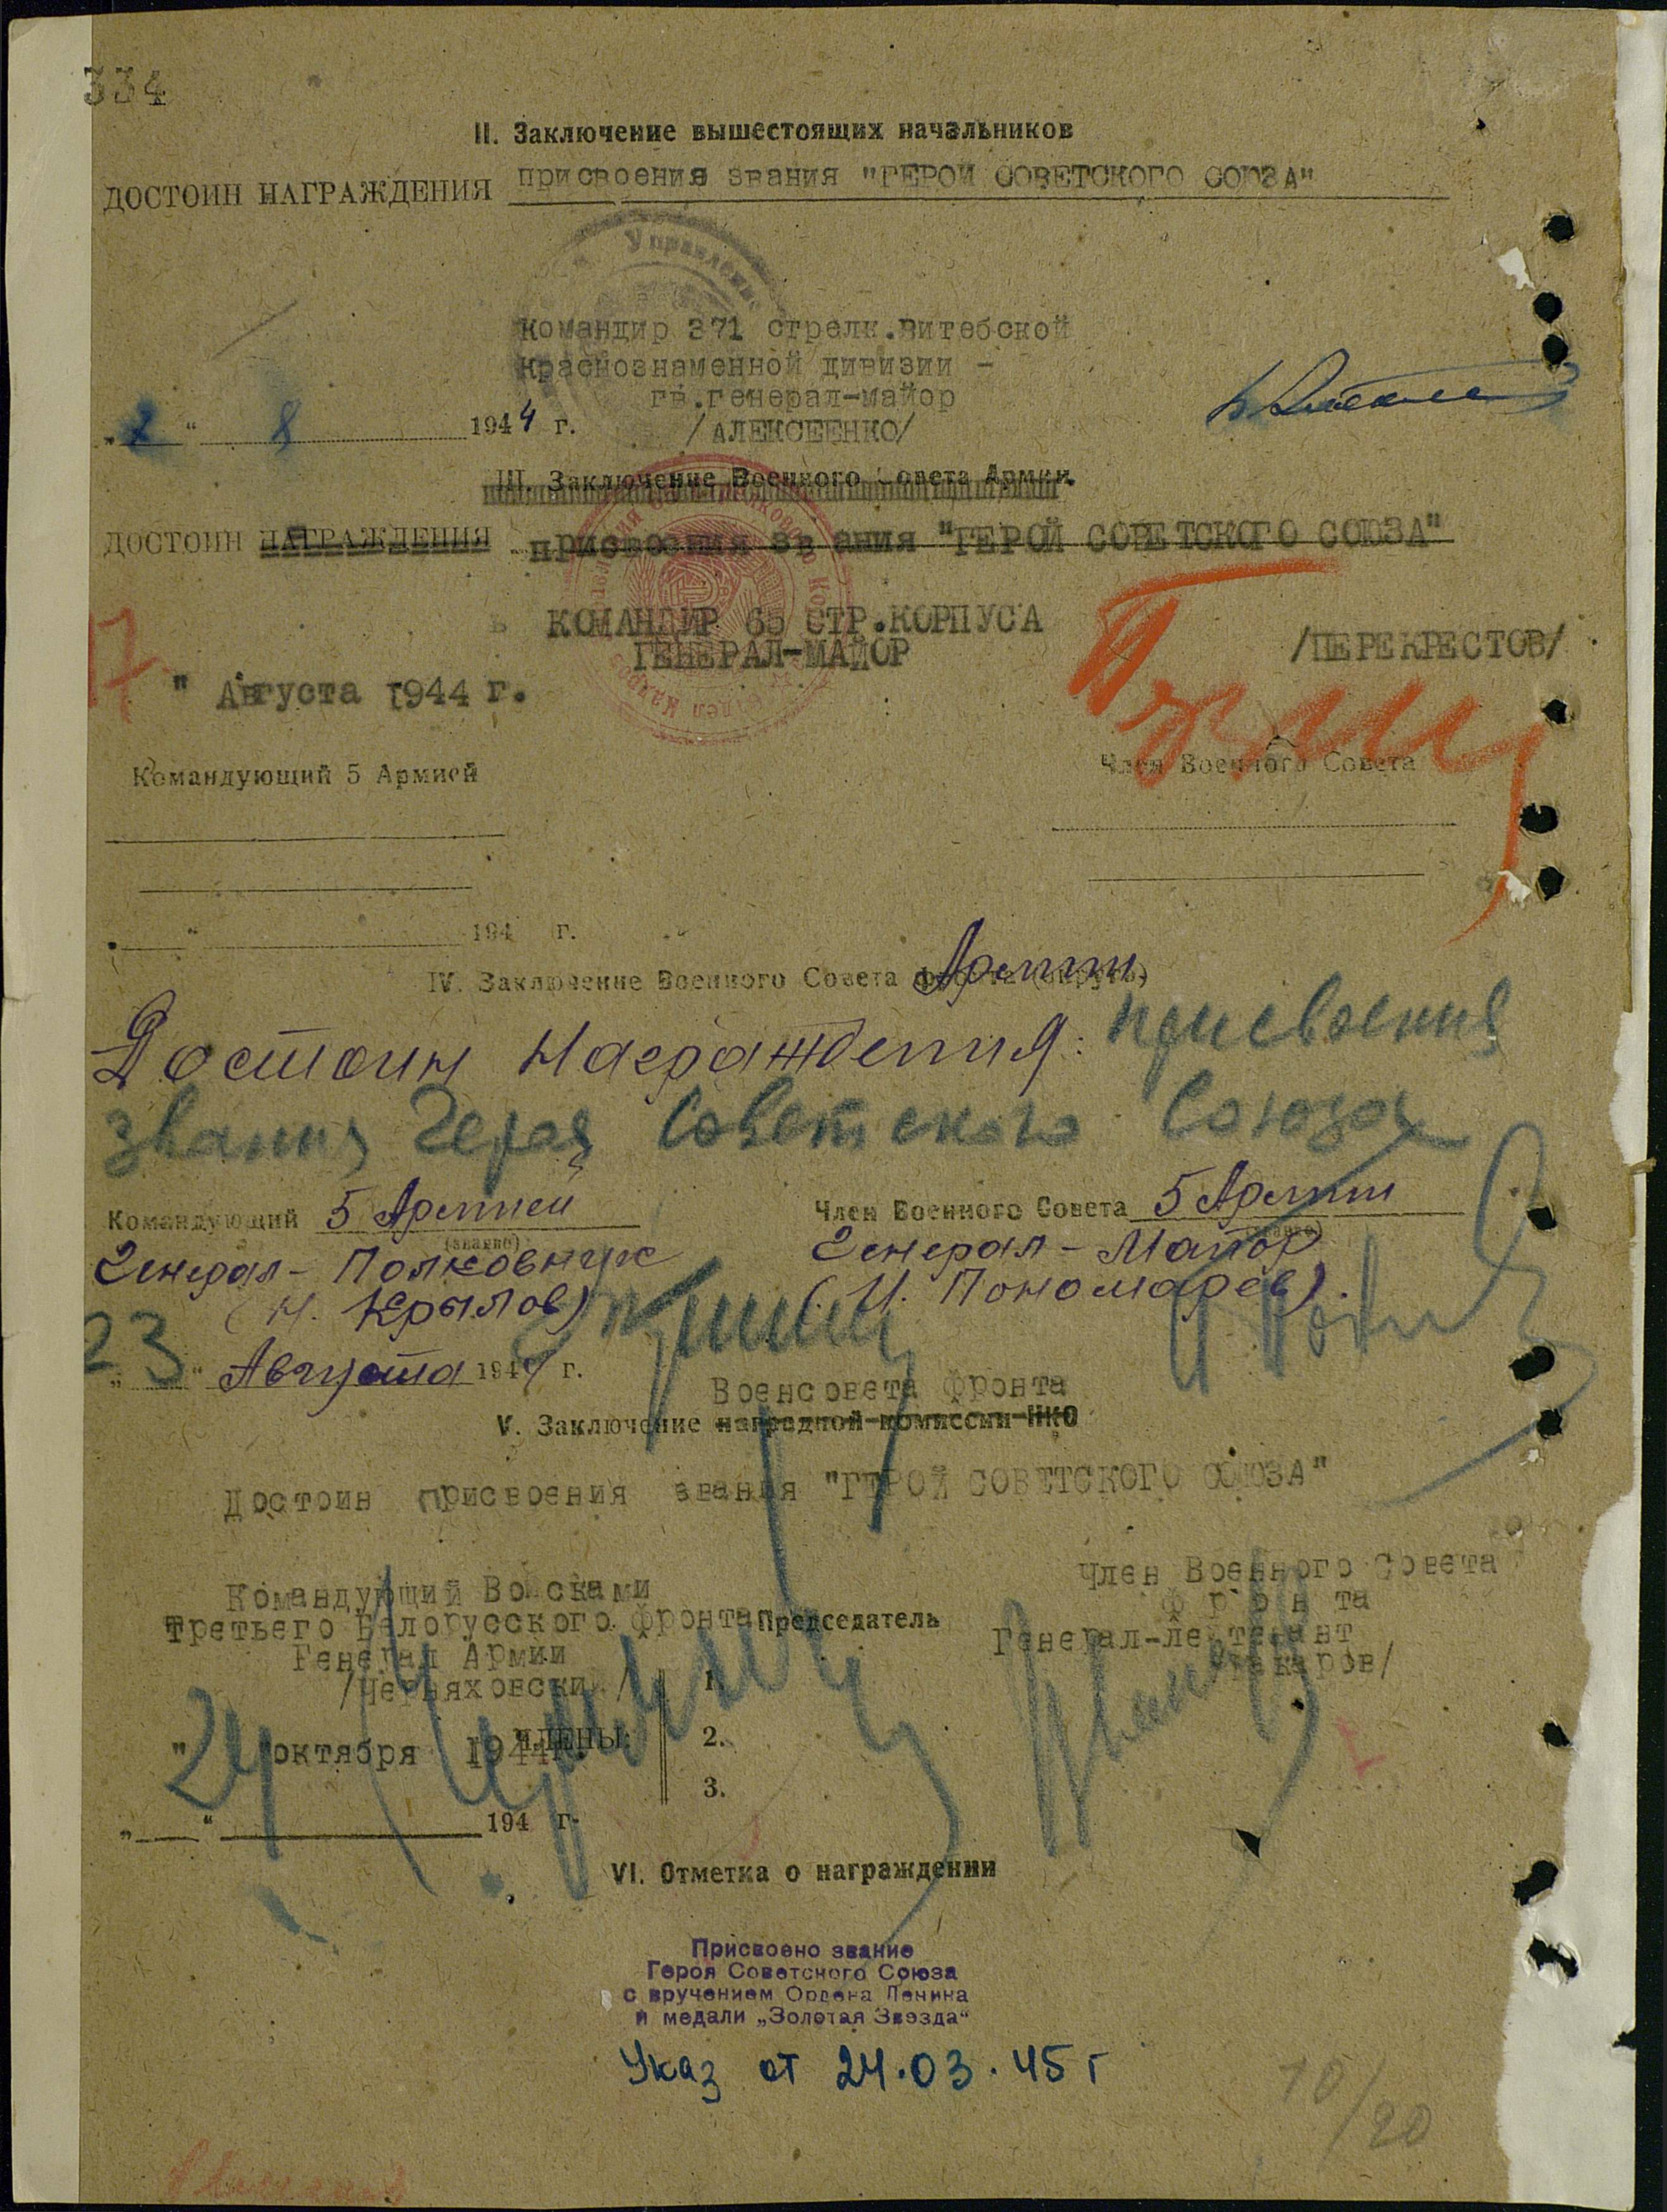 334
II. Заключение вышестоящих начальников
ДОСТОИН НАГРАЖДЕНИЯ присвоения звания "ГЕРОЙ СОВЕТСКОГО СОЮЗА"
Управление
Командир 371 стрелк.Витебской
Краснознаменной дивизии -
гв.генерал-майор
„2“ 8 1944 г. /АЛЕКСЕЕНКО/
III. Заключение Военного Совета Армии
ДОСТОИН НАГРАЖДЕНИЯ присвоения зв ания "ГЕРОЙ СОВЕТСКОГО СОЮЗА"
КОМАНДИР 65 СТР.КОРПУСА
ГЕНЕРАЛ-МАЙОР /ПЕРЕКРЕСТОВ/
17 " Августа 1944 г.
Командующий 5 Армией Член Военного Совета
„ “ 194 г.
IV. Заключение Военного Совета Армии
Достоин награждения: присвоения
звания Героя Советского Союза
Командующий 5 Армией Член Военного Совета 5 Армии
(звание) (звание)
Генерал-Полковник Генерал-Майор
(Н. Крылов) (И. Пономарёв).
23 “ Августа 1944 г.
Военсовета фронта
V. Заключение наградной комиссии НКО
Достоин присвоения звания "ГЕРОЙ СОВЕТСКОГО СОЮЗА"
Командующий Войсками Член Военного Совета
Третьего Белорусского фронта Председатель ф р о н та
Генерал Армии Генерал-лейтенант
/Черняховский/ /Макаров/
1.
" 24 октября 1944 г. ЧЛЕНЫ: 2.
3.
„ “ 194 г.
VI. Отметка о награждении
Присвоено звание
Героя Советского Союза
с вручением Ордена Ленина
и медали „Золотая Звезда“
Указ от 24.03.45 г
10/20